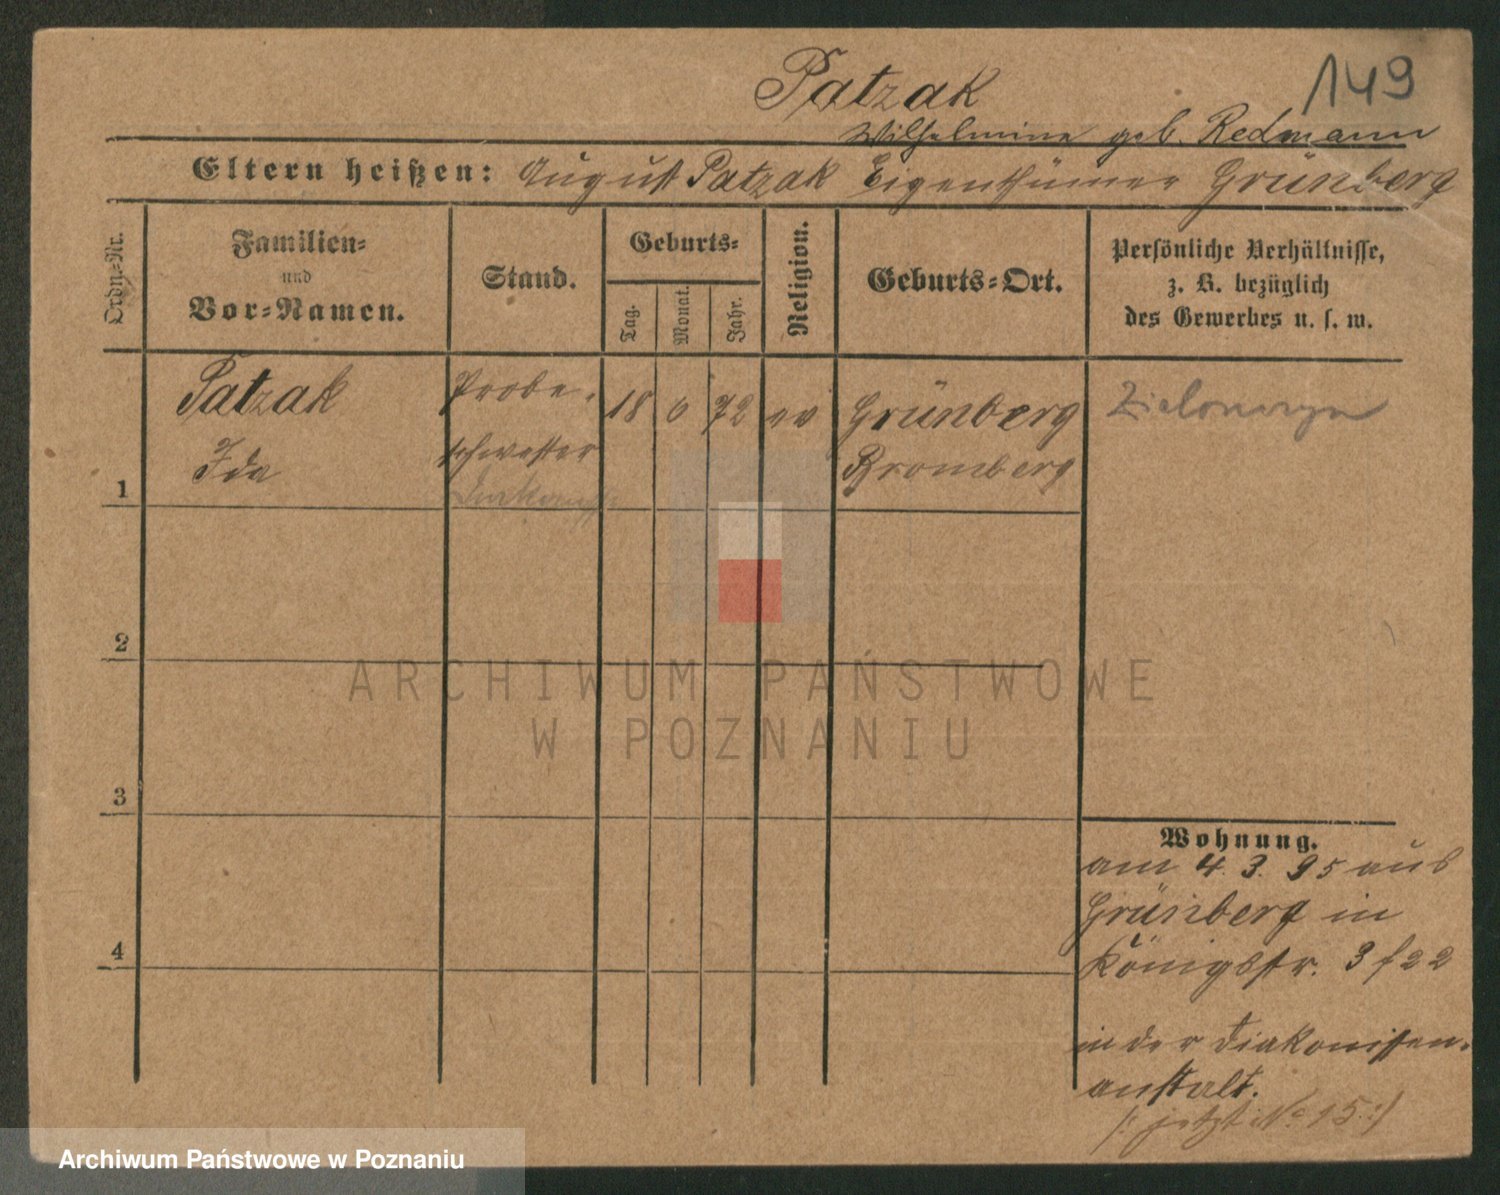 149
Patzak
Wilhelmine geb. Redmann
Eltern heißen: August Patzak Eigenthümer Grünberg
Ordn=Nr.
Familien=
und
Vor=Namen.
Stand.
Geburts=
Tag.
Monat.
Jahr.
Religion.
Geburts=Ort.
Persönliche Verhältnisse,
z. B. bezüglich
des Gewerbes u. s. w.
1
Patzak
Ida
Probe-
schwester
18 6 72 ev
Grünberg
Bromberg
2
3
4
Wohnung.
am 4. 3. 95 aus
Grünberg in
Königsstr. 3 f 22
in der Diakonissen-
anstalt.
/: jetzt No 15 :/
ARCHIWUM PAŃSTWOWE
W POZNANIU
Archiwum Państwowe w Poznaniu